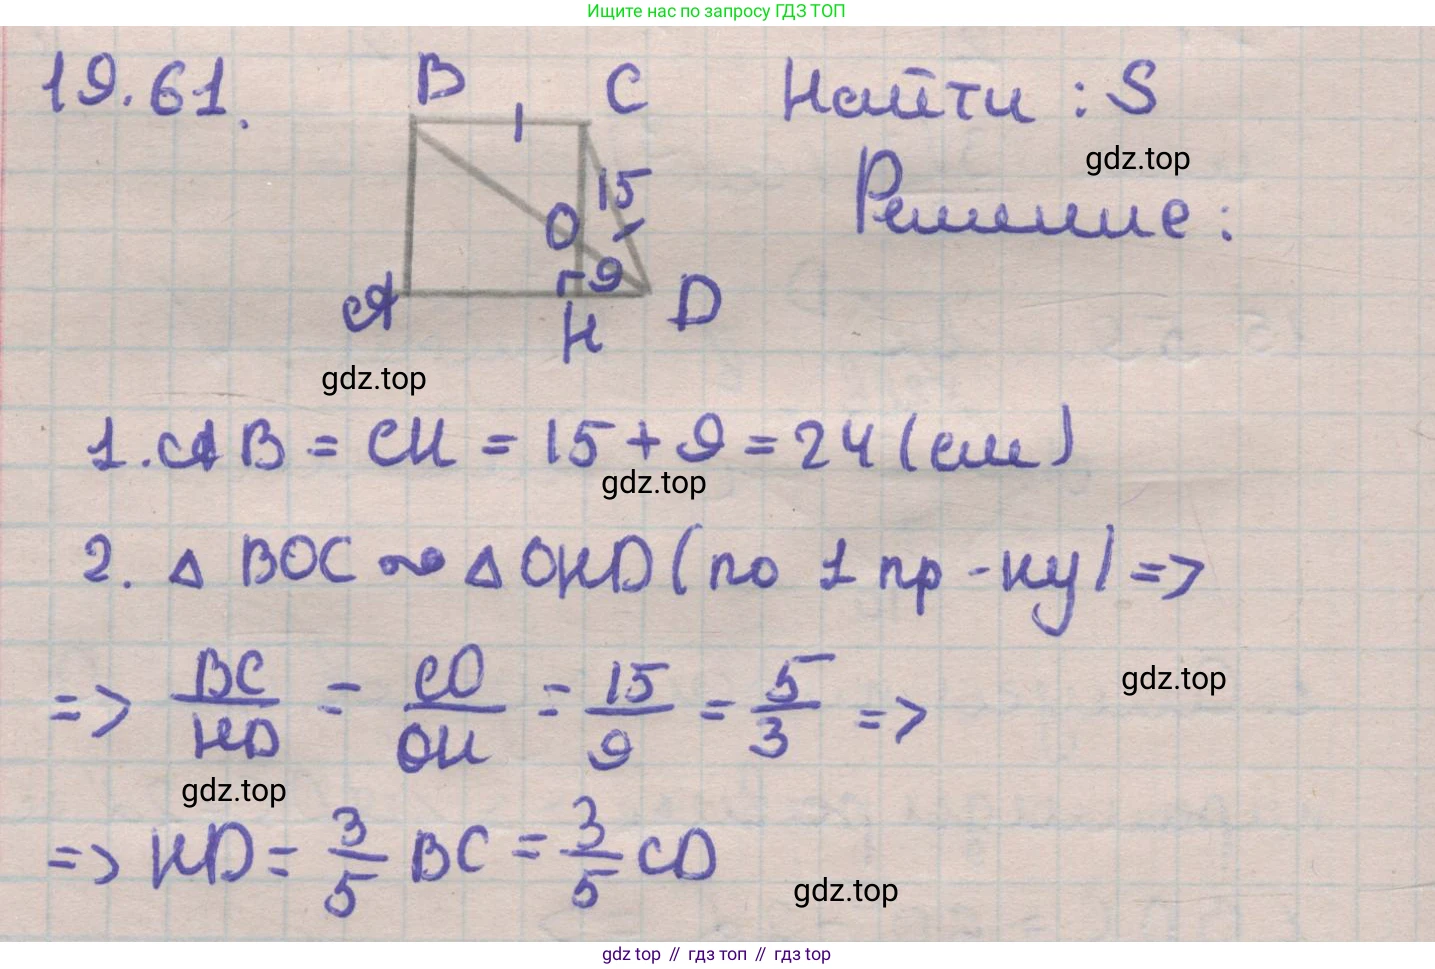 Ищите нас по запросу ГДЗ ТОП
19.61.
B
C
Найти : S
gdz.top
15
Решение :
O
9
A
H
D
gdz.top
1. AB = CH = 15 + 9 = 24 (см)
gdz.top
2. △ BOC ∾ △ OHD (по 1 пр-ку) =>
=> BC/HD = CO/OH = 15/9 = 5/3 =>
gdz.top
gdz.top
=> HD = 3/5 BC = 3/5 CD
gdz.top
gdz top // гдз топ // gdz top